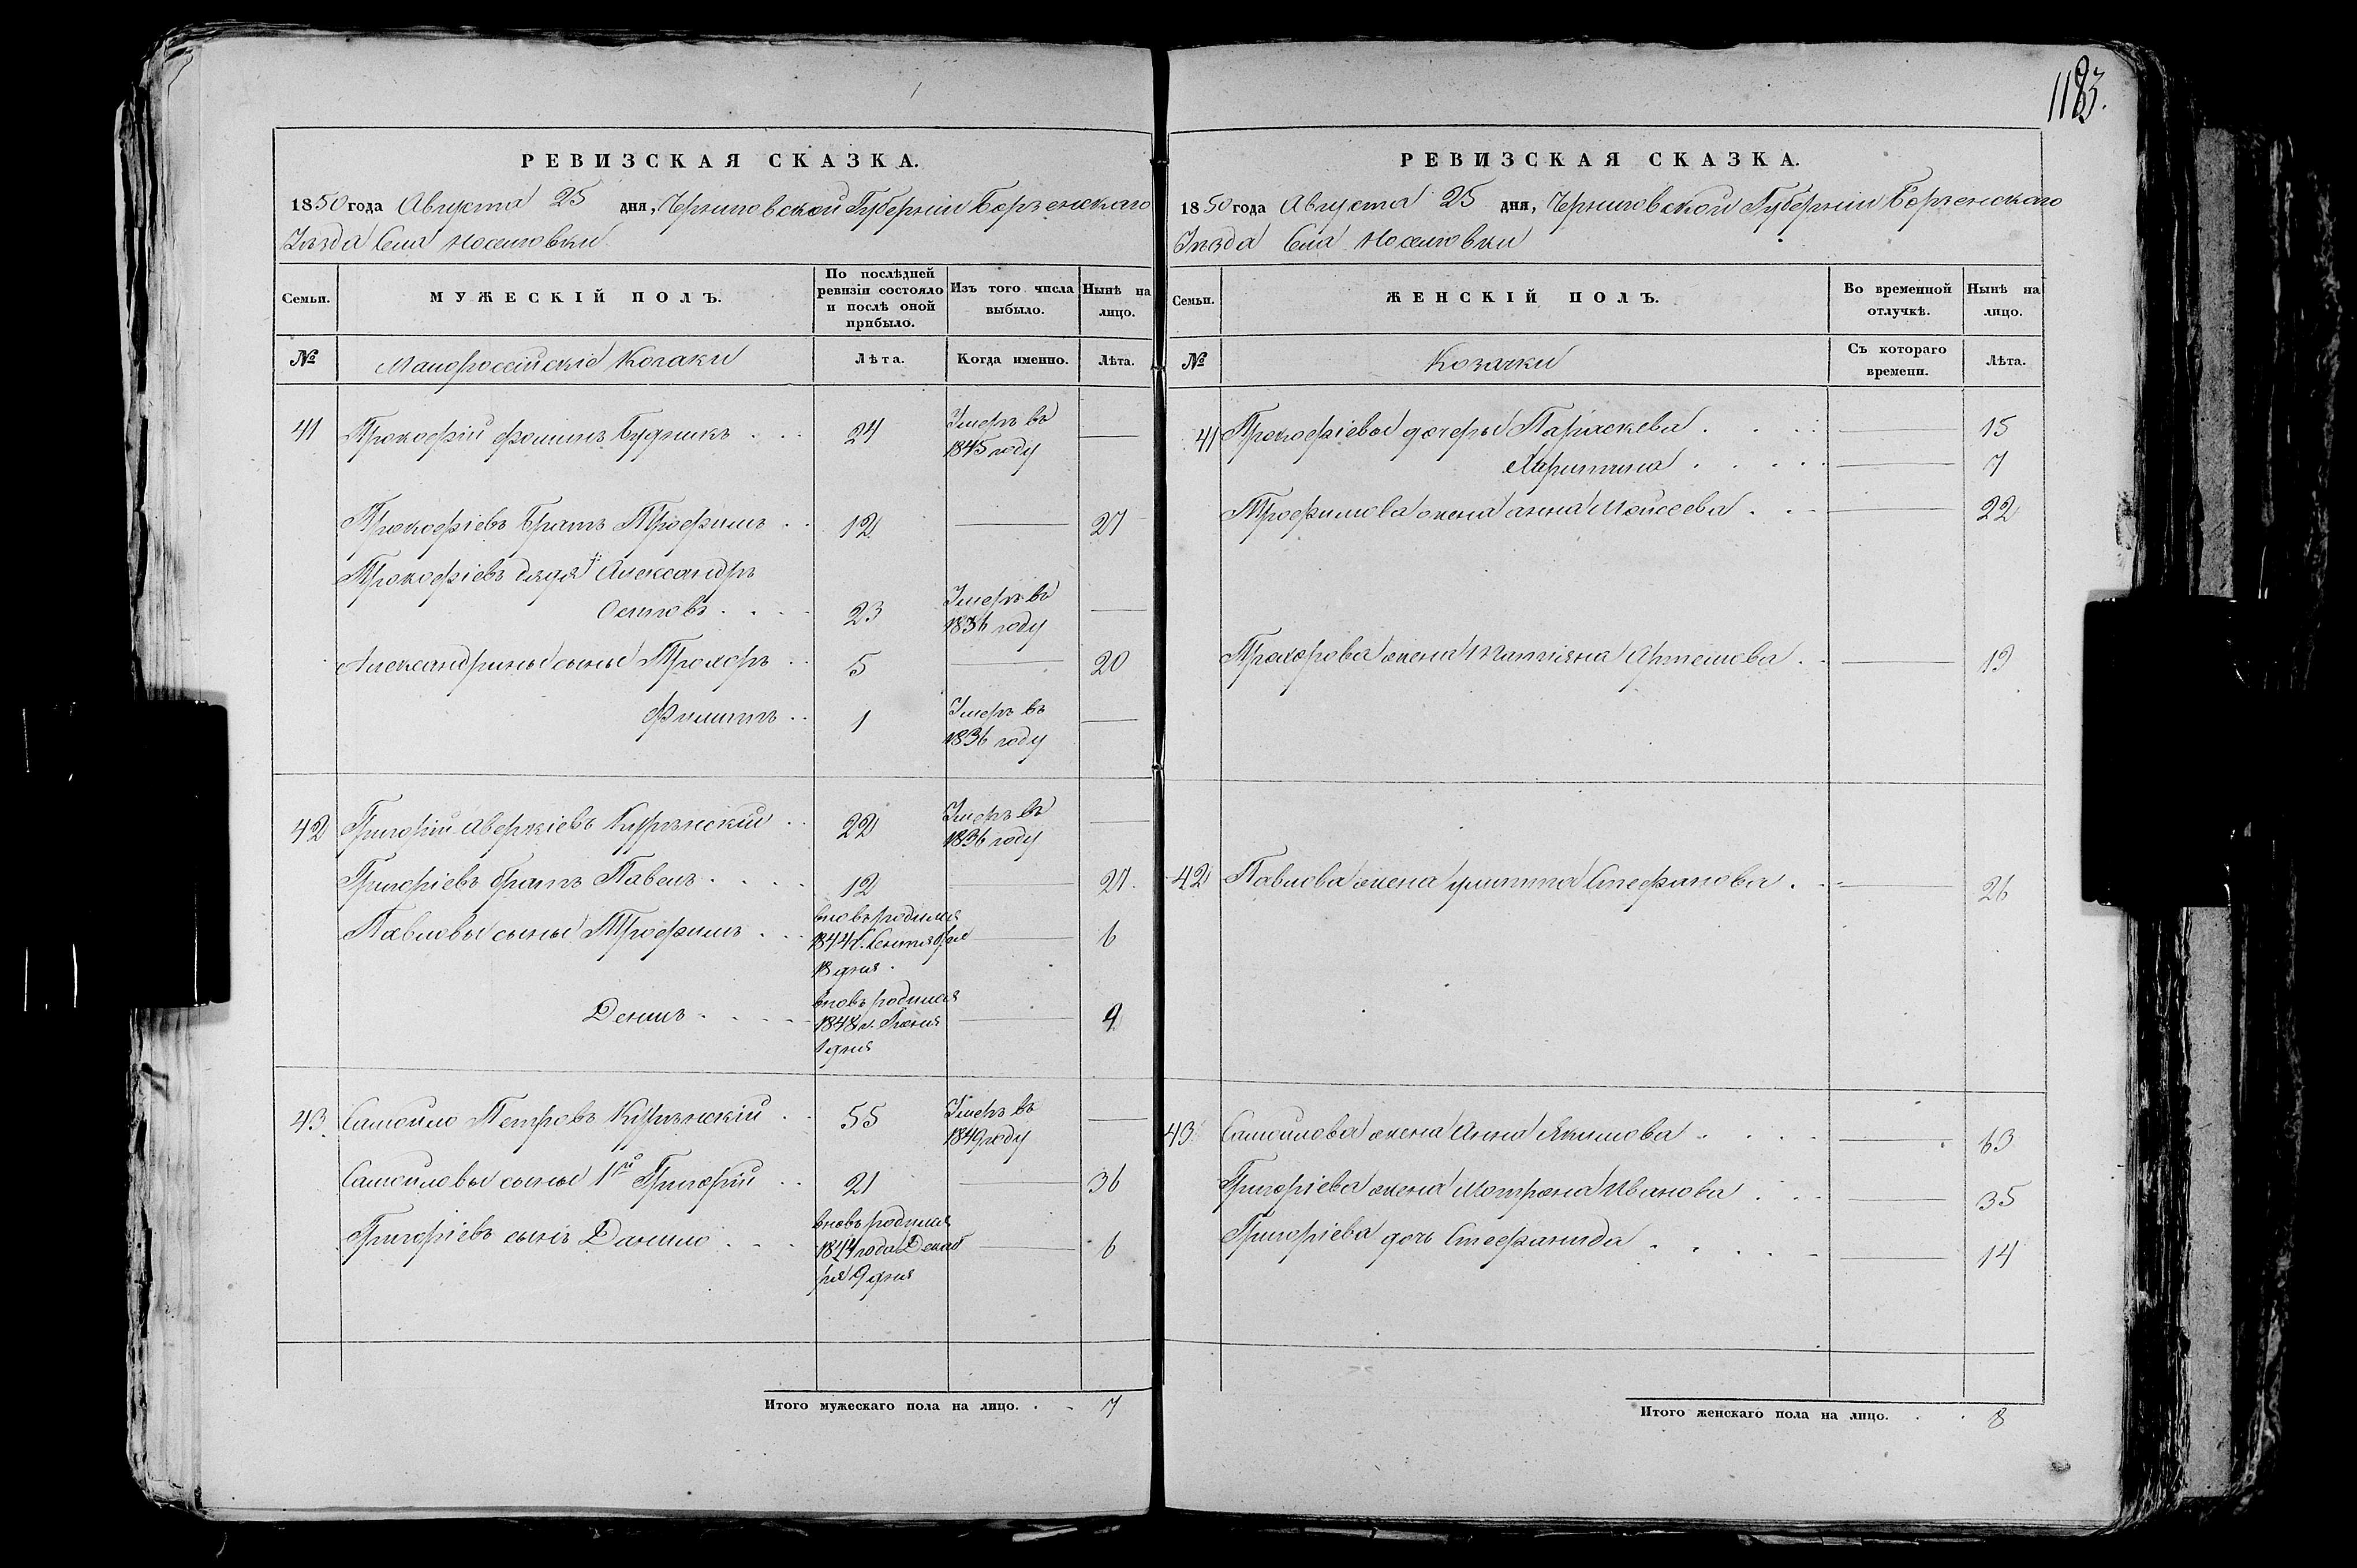 1183.
РЕВИЗСКАЯ СКАЗКА.
1850 года Августа 25 дня, Черниговской Губернии Борзенскаго
Уезда Села
МУЖЕСКІЙ ПОЛЪ.
Семьи.
По послѣдней ревизіи состояло и послѣ оной прибыло.
Изъ того числа выбыло.
Нынѣ на лицо.
№
Малороссійскіе Козаки
Лѣта.
Когда именно.
Лѣта.
41 Прокофій Фоминъ Будникъ 24 Умеръ въ 1845 году —
Прокофіевъ братъ Трофимъ 12 — 27
Прокофіевъ дядя Александръ
Осиповъ 23 Умеръ въ 1836 году —
Александрины сыны Прохоръ 5 — 20
Филиппъ 1 Умеръ въ 1836 году —
42 Григорій Аверкіевъ 22 Умеръ въ 1836 году —
Григоріевъ братъ Павелъ 12 — 27
Павловы сыны Трофимъ вновь родился 1844 г. Сентября 13 дня — 6
Денисъ вновь родился 1 дня —
43 Самойло Петровъ 55 Умеръ въ 1849 году —
Самойловы сыны 1й Григорій 21 — 36
Григоріевъ сынъ Данило вновь родился 1844 года Декабря 9 дня — 6
Итого мужескаго пола на лицо. 7
РЕВИЗСКАЯ СКАЗКА.
1850 года Августа 25 дня, Черниговской Губернии Борзенскаго
Уезда Села
Семьи.
ЖЕНСКІЙ ПОЛЪ.
Во временной отлучкѣ.
Нынѣ на лицо.
№
Козачки
Съ котораго времени.
Лѣта.
41 Прокофіевы дочеры Параскева — 15
Христина — 7
Трофимова жена Анна Мойсеева — 22
Прохорова жена Татіяна Артемова — 19
42 Павлова жена Улита Стефанова — 26
43 Самойлова жена Анна Якимова — 63
Григоріева жена Мотрона Иванова — 35
Григоріева дочь Стефанида — 14
Итого женскаго пола на лицо. 8